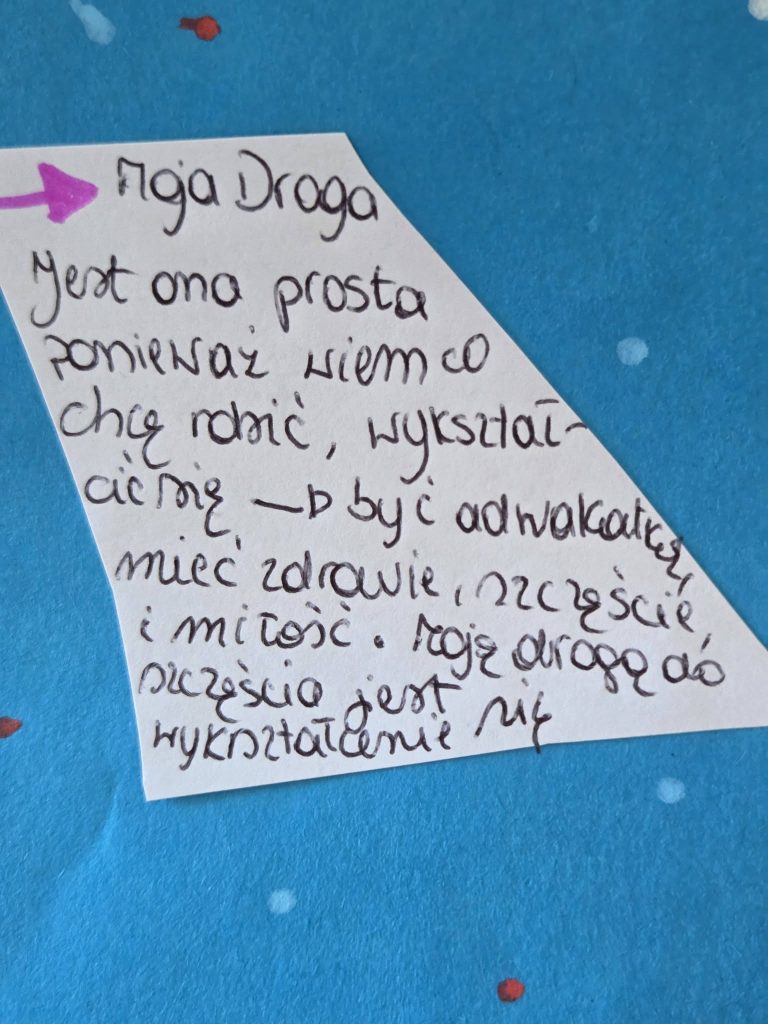 Moja Droga
Jest ona prosta
ponieważ wiem co
chcę robić, wykształ-
cić się → być adwakatką,
mieć zdrowie, szczęście,
i miłość. Moją drogą do
szczęścia jest
wykształcenie się